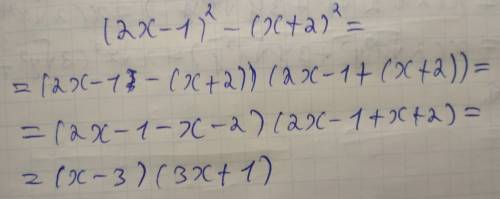 (2x-1)² - (x+2)² =
= (2x-1 - (x+2)) (2x-1 + (x+2)) =
= (2x-1-x-2) (2x-1+x+2) =
= (x-3) (3x+1)